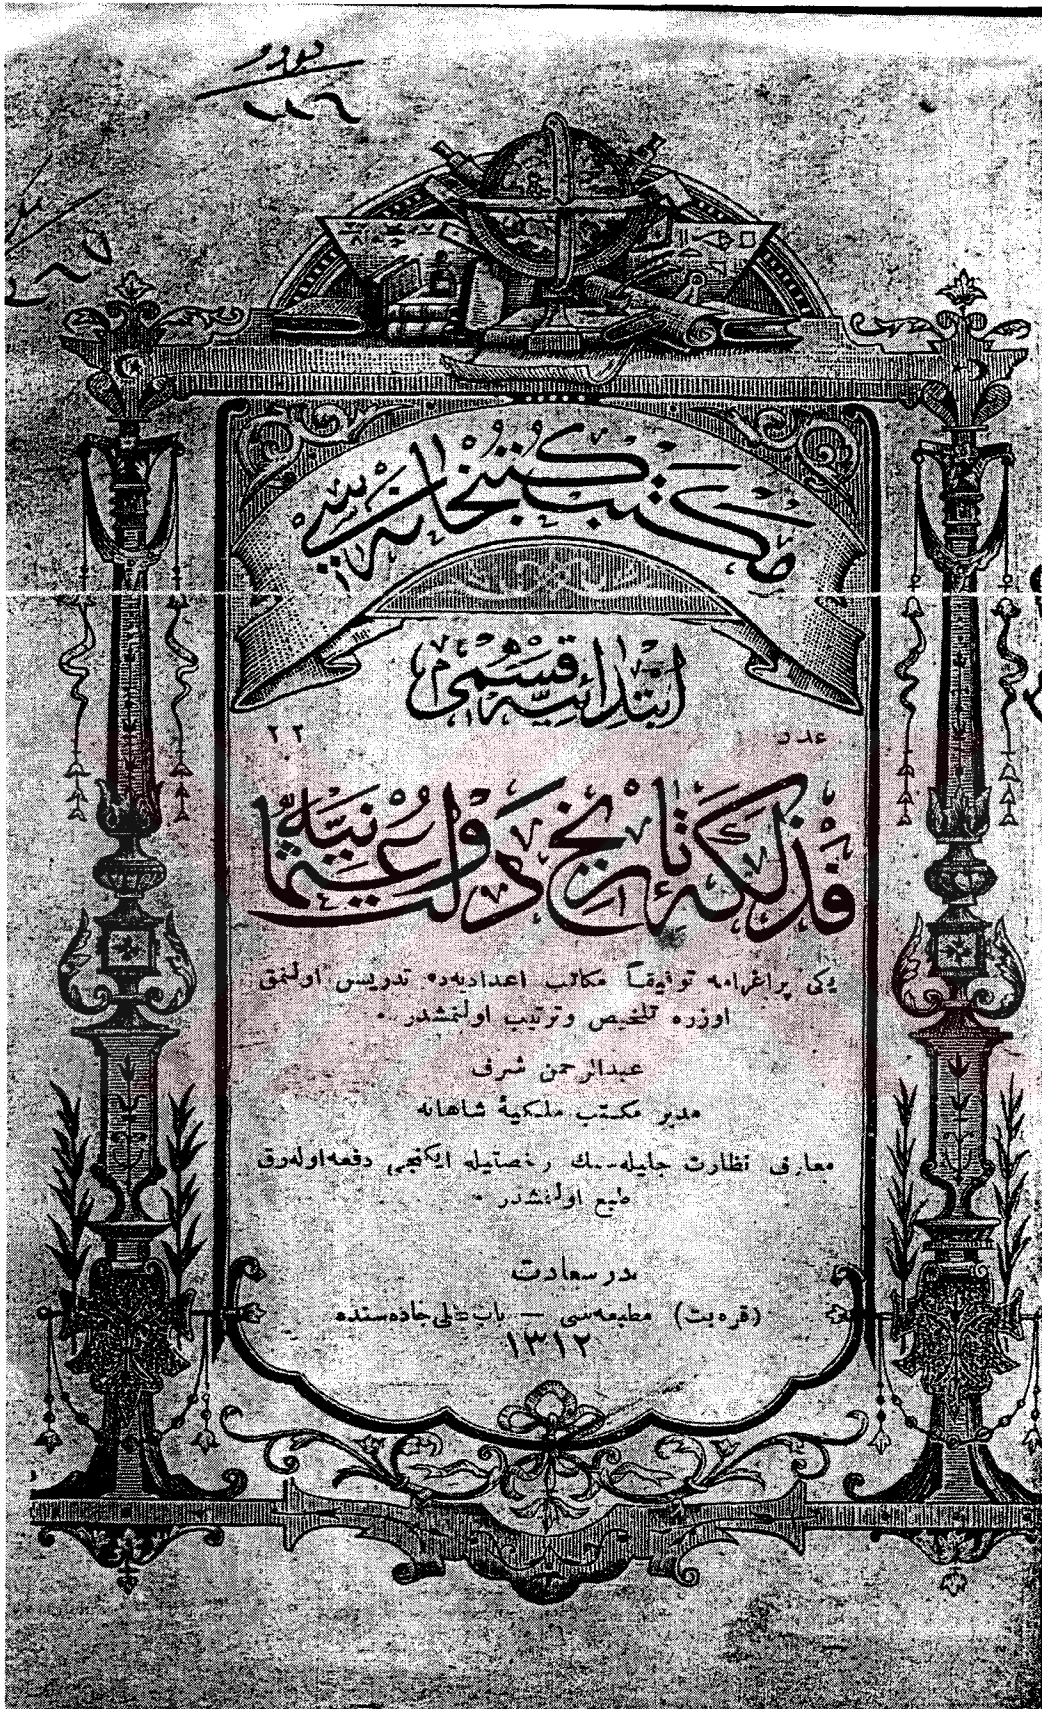 مكتب كتبخانه‌سی
ابتدائیه قسمی
عدد ٢٢
فذلكهٔ تاریخ دولت عثمانیه
یكی پراغرامه توفیقاً مكاتب اعدادیه‌ده تدریس اولنمق
اوزره تلخیص وترتیب اولنمشدر .
عبدالرحمن شرف
مدیر مكتب ملكیهٔ شاهانه
معارف نظارت جلیله‌سنك رخصتیله ایكنجی دفعه اوله‌رق
طبع اولنمشدر .
در سعادت
(قره بت) مطبعه‌سی — باب عالی جاده‌سنده
١٣١٢